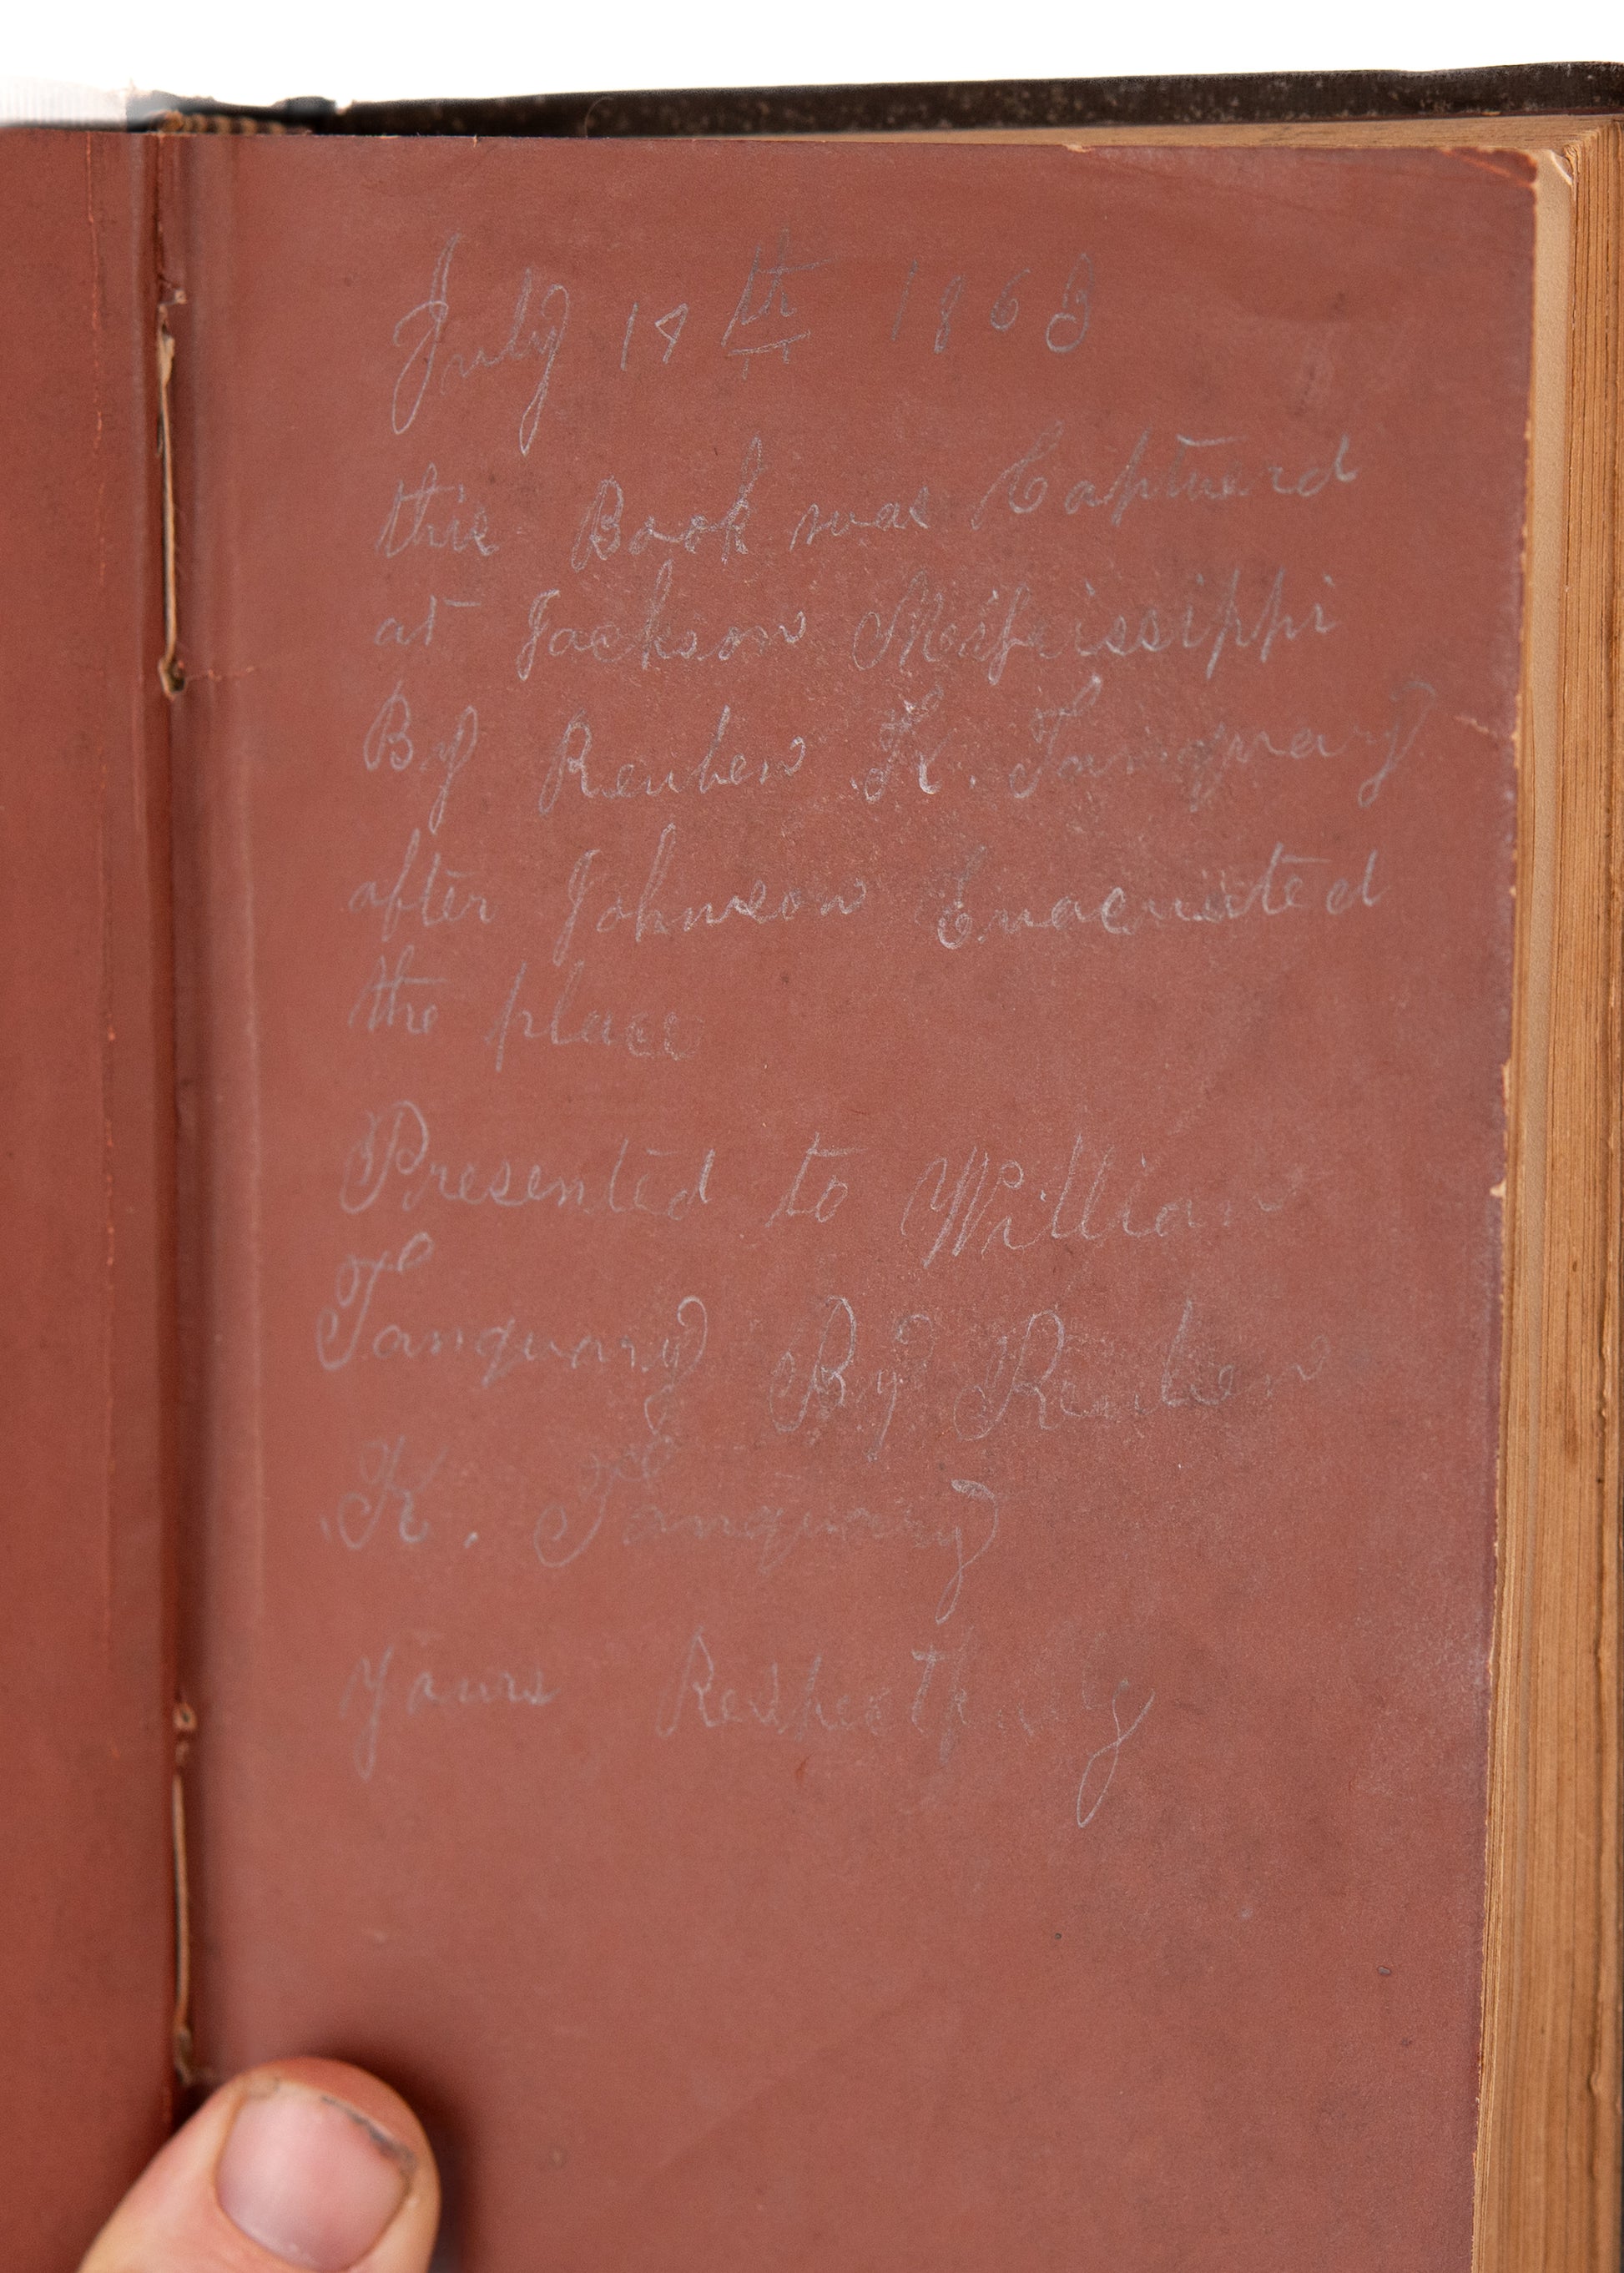 July 18th 1863
this Book was Capturd
at Jackson Missississippi
By Reuben K. Tanquary
after Johnson Evacuated
the place
Presented to William
Tanquary By Reuben
K. Tanquary
yours Respectfully